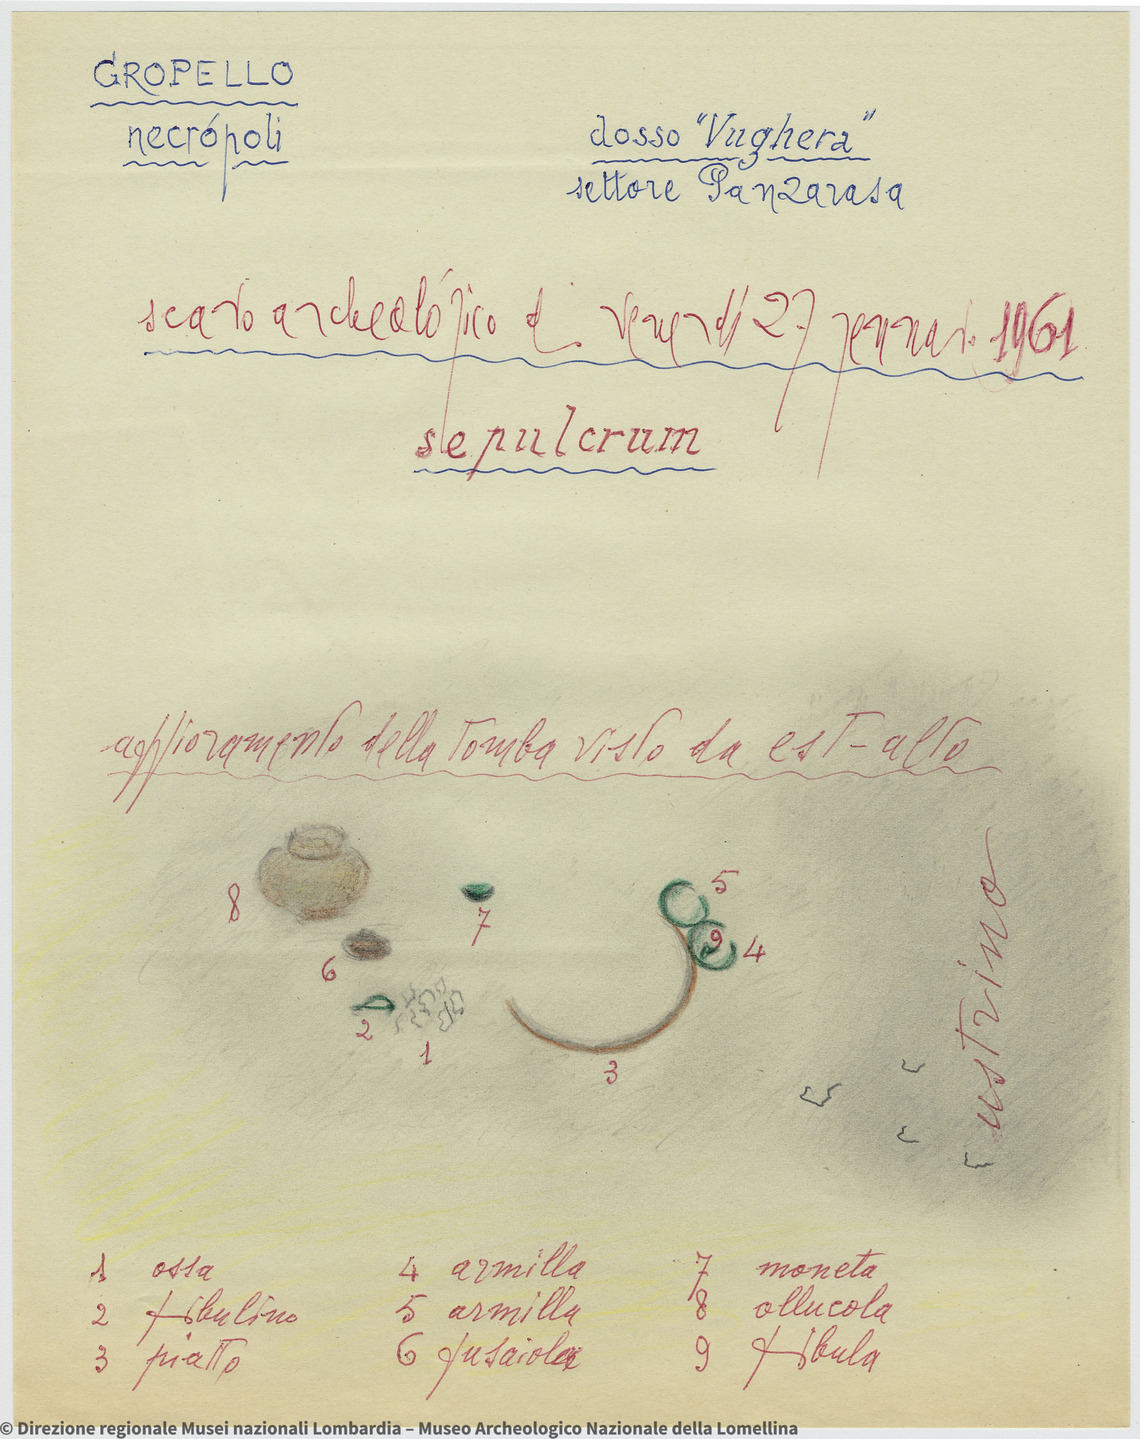 GROPELLO
necrópoli
dosso "Vughera"
settore Panzarasa
scavo archeológico di venerdì 27 gennaio 1961
sepulcrum
affioramento della tomba visto da est-alto
8
5
7
9
4
6
2
1
3
ustrino
1 ossa
2 fibulino
3 piatto
4 armilla
5 armilla
6 fusaiola
7 moneta
8 ollucola
9 fibula
© Direzione regionale Musei nazionali Lombardia – Museo Archeologico Nazionale della Lomellina